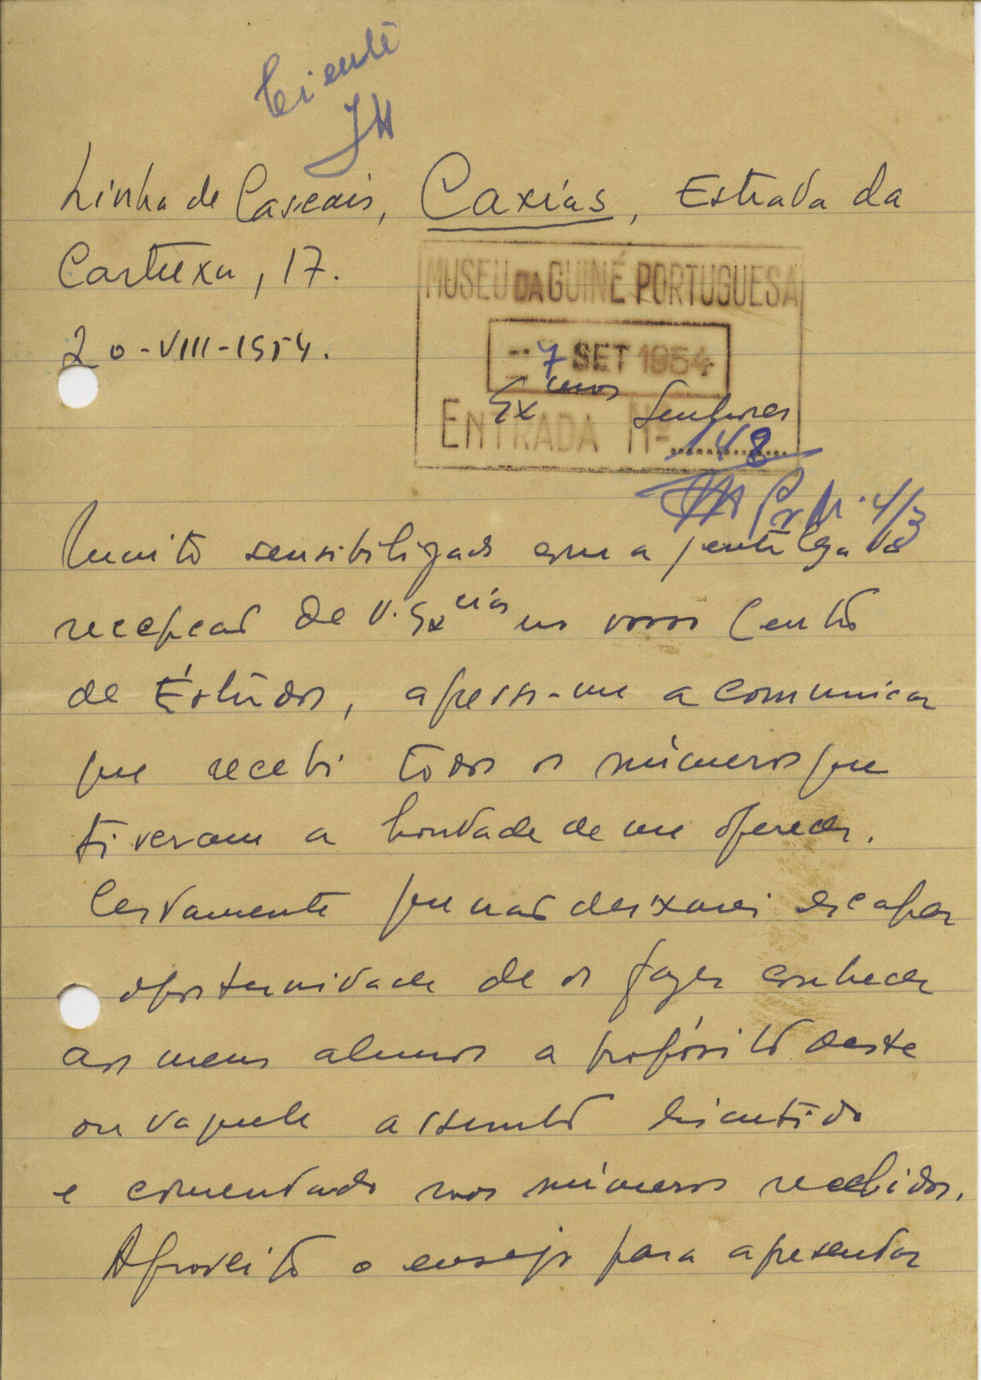 Ciente
JH
Linha de Cascais, Caxias, Estrada da
Cartuxa, 17.
20-VIII-1954.
MUSEU DA GUINÉ PORTUGUESA
7 SET 1954
ENTRADA Nº 48
Exmos Senhores
Pr Nº 4/3
Muito sensibilizado com a gentileza da
recepção de V. Excias no vosso Centro
de Estudos, apresso-me a comunicar
que recebi todos os números que
tiveram a bondade de me oferecer.
Certamente que não deixarei escapar
oportunidade de os fazer conhecer
aos meus alunos a propósito deste
ou daquele assunto discutido
e comentado nos números recebidos.
Aproveito o ensejo para apresentar